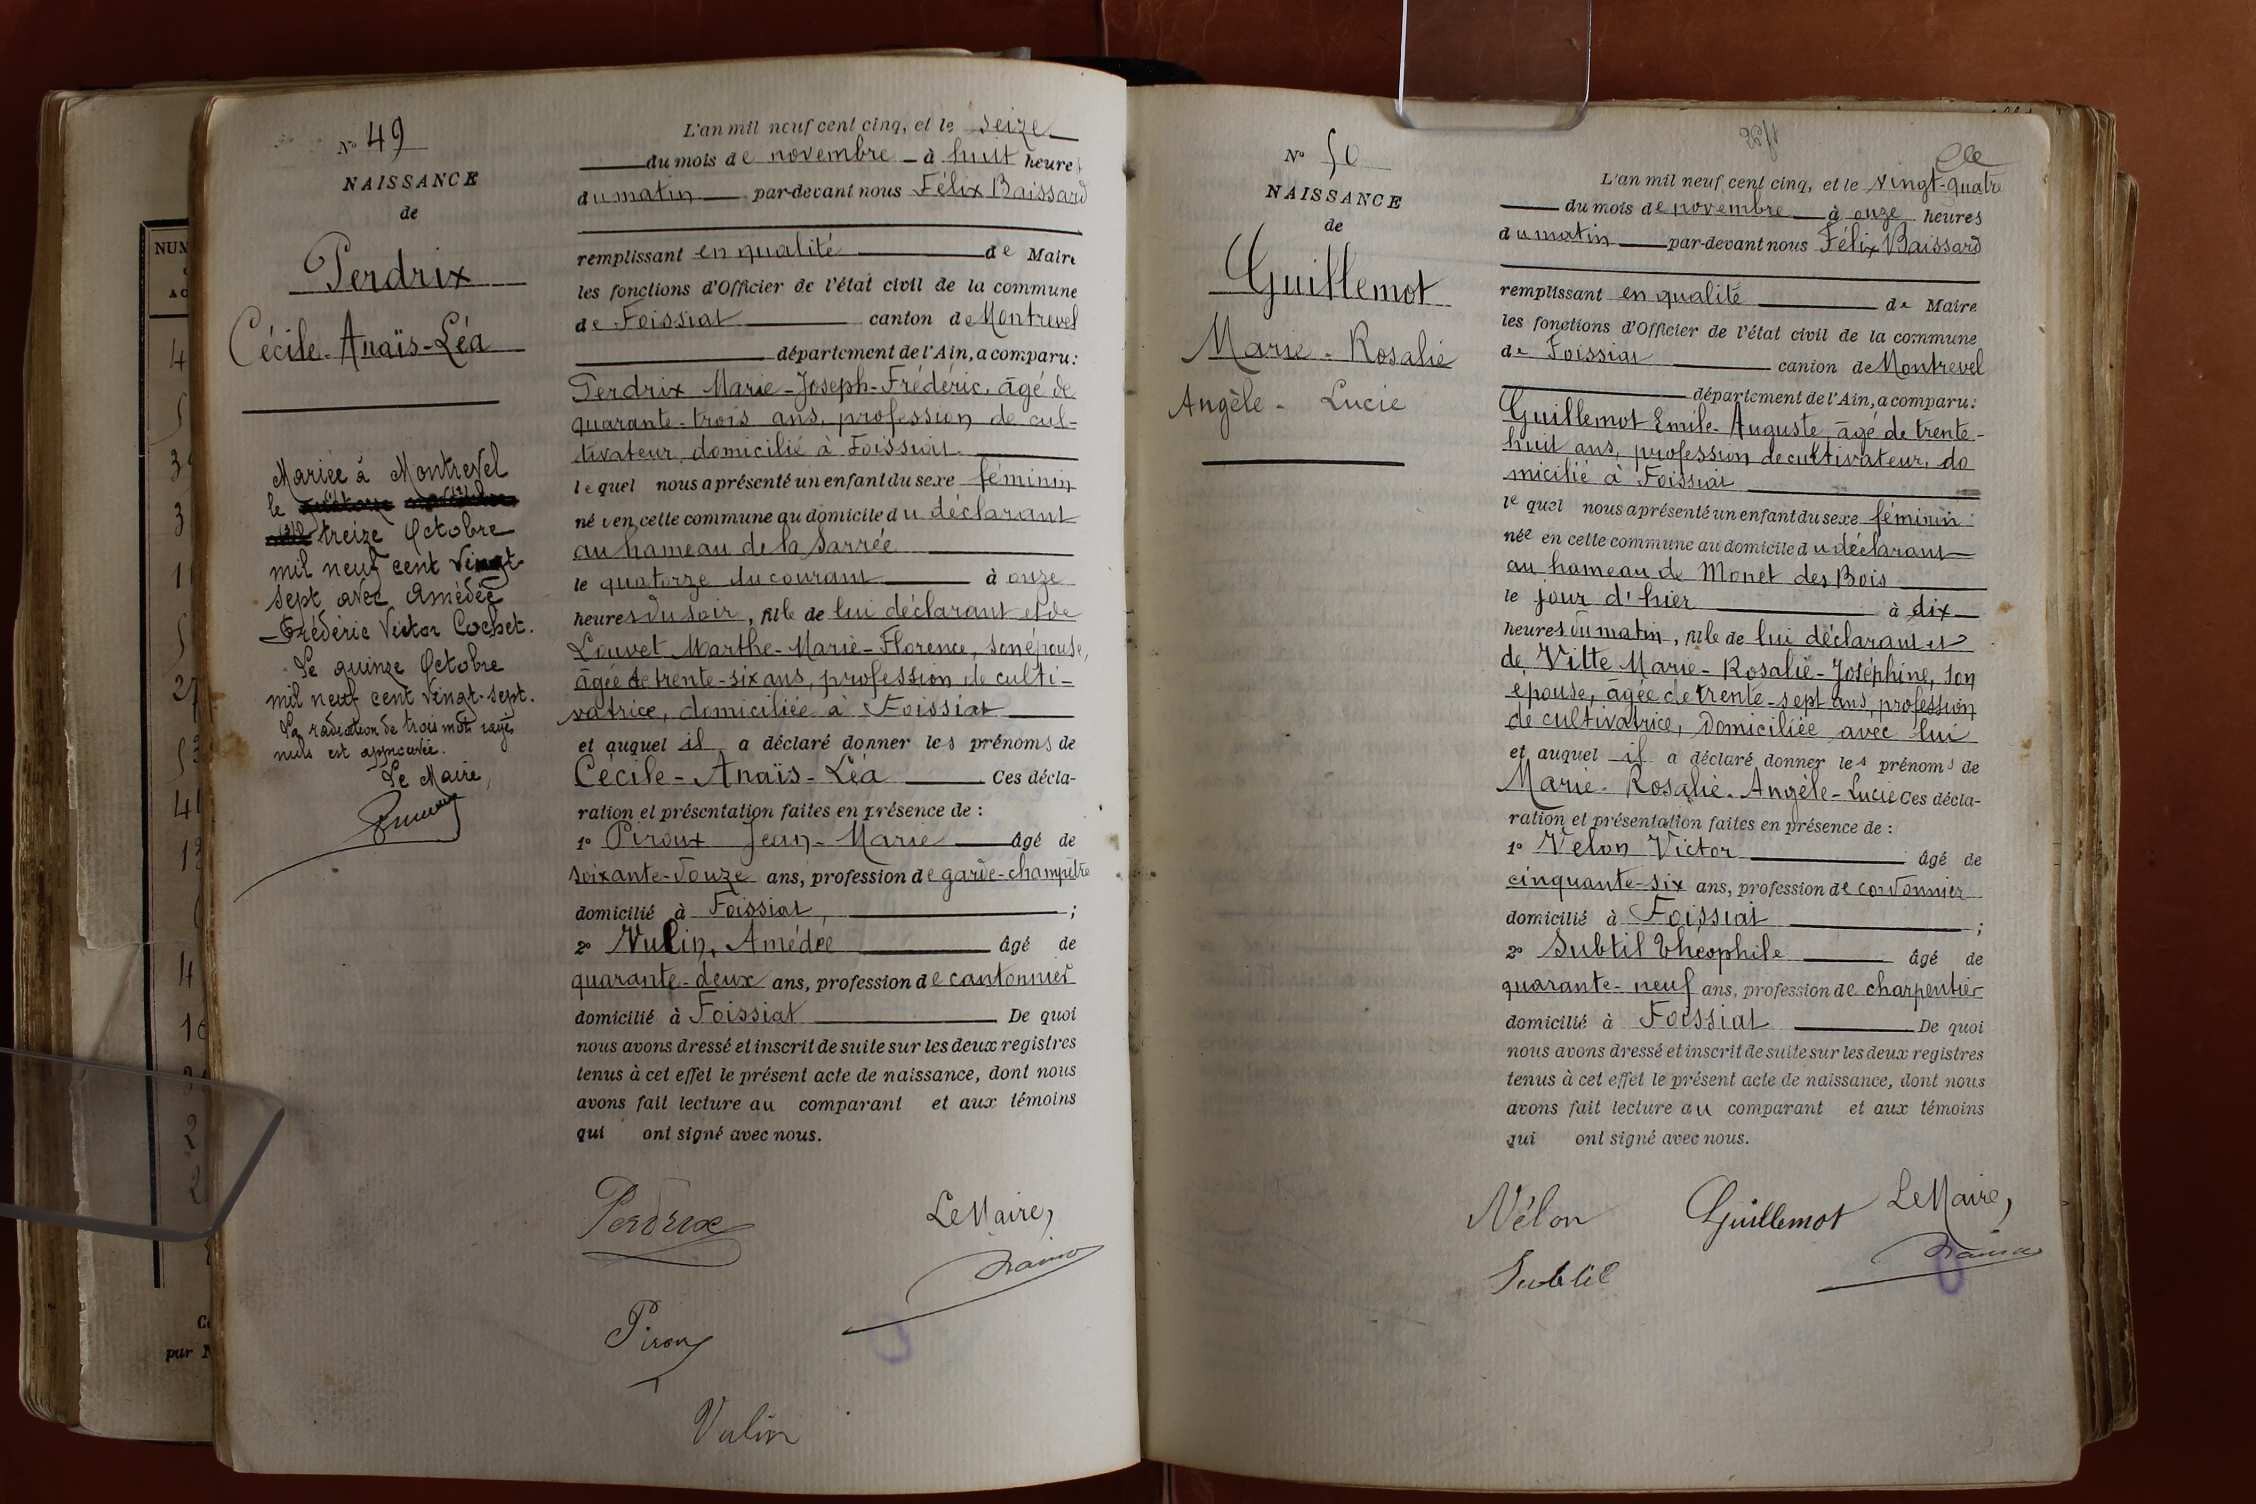 N° 49
NAISSANCE
de
Perdrix
Cécile-Anaïs-Léa
Mariée à Montrevel
le
treize Octobre
mil neuf cent vingt-
sept avec Amédée
Frédéric Victor Cochet.
Le quinze Octobre
mil neuf cent vingt-sept.
La radiation de trois mots rayés
nuls est approuvée.
Le Maire,
L'an mil neuf cent cinq, et le seize
du mois de novembre à huit heures
du matin par-devant nous Félix Baissard
remplissant en qualité de Maire
les fonctions d'Officier de l'état civil de la commune
de Foissiat canton de Montrevel
département de l'Ain, a comparu:
Perdrix Marie-Joseph-Frédéric, âgé de
quarante-trois ans, profession de cul-
tivateur, domicilié à Foissiat
lequel nous a présenté un enfant du sexe féminin
née en cette commune au domicile du déclarant
au hameau de la Sarrée
le quatorze du courant à onze
heures du soir, fille de lui déclarant et de
Louvet Marthe-Marie-Florence, son épouse,
âgée de trente-six ans, profession de culti-
vatrice, domiciliée à Foissiat
et auquel il a déclaré donner les prénoms de
Cécile-Anaïs-Léa Ces décla-
ration et présentation faites en présence de :
1° Piroux Jean-Marie âgé de
soixante-douze ans, profession de garde-champêtre
domicilié à Foissiat, ;
2° Vulin, Amédée âgé de
quarante-deux ans, profession de cantonnier
domicilié à Foissiat De quoi
nous avons dressé et inscrit de suite sur les deux registres
tenus à cet effet le présent acte de naissance, dont nous
avons fait lecture au comparant et aux témoins
qui ont signé avec nous.
Perdrix
Le Maire,
Piroux
Vulin
N° 50
NAISSANCE
de
Guillemot
Marie-Rosalie
Angèle-Lucie
L'an mil neuf cent cinq, et le vingt-quatre
du mois de novembre à onze heures
du matin par-devant nous Félix Baissard
remplissant en qualité de Maire
les fonctions d'Officier de l'état civil de la commune
de Foissiat canton de Montrevel
département de l'Ain, a comparu:
Guillemot Emile-Auguste, âgé de trente-
huit ans, profession de cultivateur, do
micilié à Foissiat
lequel nous a présenté un enfant du sexe féminin
née en cette commune au domicile du déclarant
au hameau de Monet des Bois
le jour d'hier à dix
heures du matin, fille de lui déclarant et
de Vitte Marie-Rosalie-Joséphine, son
épouse, âgée de trente-sept ans, profession
de cultivatrice, domiciliée avec lui
et auquel il a déclaré donner les prénoms de
Marie-Rosalie-Angèle-Lucie Ces décla-
ration et présentation faites en présence de :
1° Vélon Victor âgé de
cinquante-six ans, profession de cordonnier
domicilié à Foissiat ;
2° Subtil Théophile âgé de
quarante-neuf ans, profession de charpentier
domicilié à Foissiat De quoi
nous avons dressé et inscrit de suite sur les deux registres
tenus à cet effet le présent acte de naissance, dont nous
avons fait lecture au comparant et aux témoins
qui ont signé avec nous.
Vélon Guillemot Le Maire,
Subtil